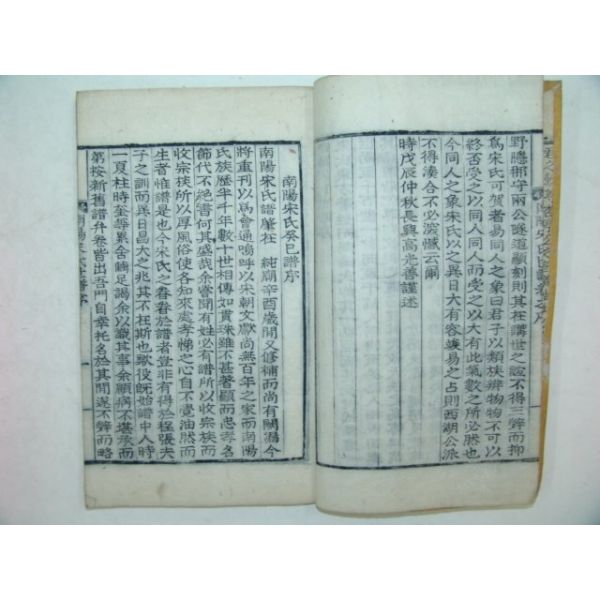 野隱郡守兩公隧道顯刻則其在講世之誼不得三辭而抑
爲宋氏可賀者易同人之象曰君子以類族辨物物不可以
終否受之以同人同人而受之以大有此氣數之所必然也
今同人之象宋氏以之異日大有容竢易之占則西湖公派
不得湊合不必深憾云爾
時戊辰仲秋長興高光善謹述
南陽宋氏癸巳譜序
南陽宋氏譜肇在 純廟辛酉歲開又修補而尚有闕漏今
將重刊以爲會通嗚呼以宋朝文獻尚無百年之家而南陽
氏族歷半千年數十世相傳如貫珠雖不甚著顯而忠孝名
節代不絶書何其盛哉余嘗聞有姓必有譜所以收宗族而
收宗族所以厚風俗使各知來處孝悌之心自不覺油然而
生者惟譜是也今宋氏之眷眷於譜者豈非有得於程張夫
子之訓而異日昌大之兆其不在斯也歟役旣始譜中人時
一夏柱時金等累舍踵足謁余以識其事余顯病不堪承而
第按新舊譜弁卷皆出吾門自幸托名於其間遂不辭而略